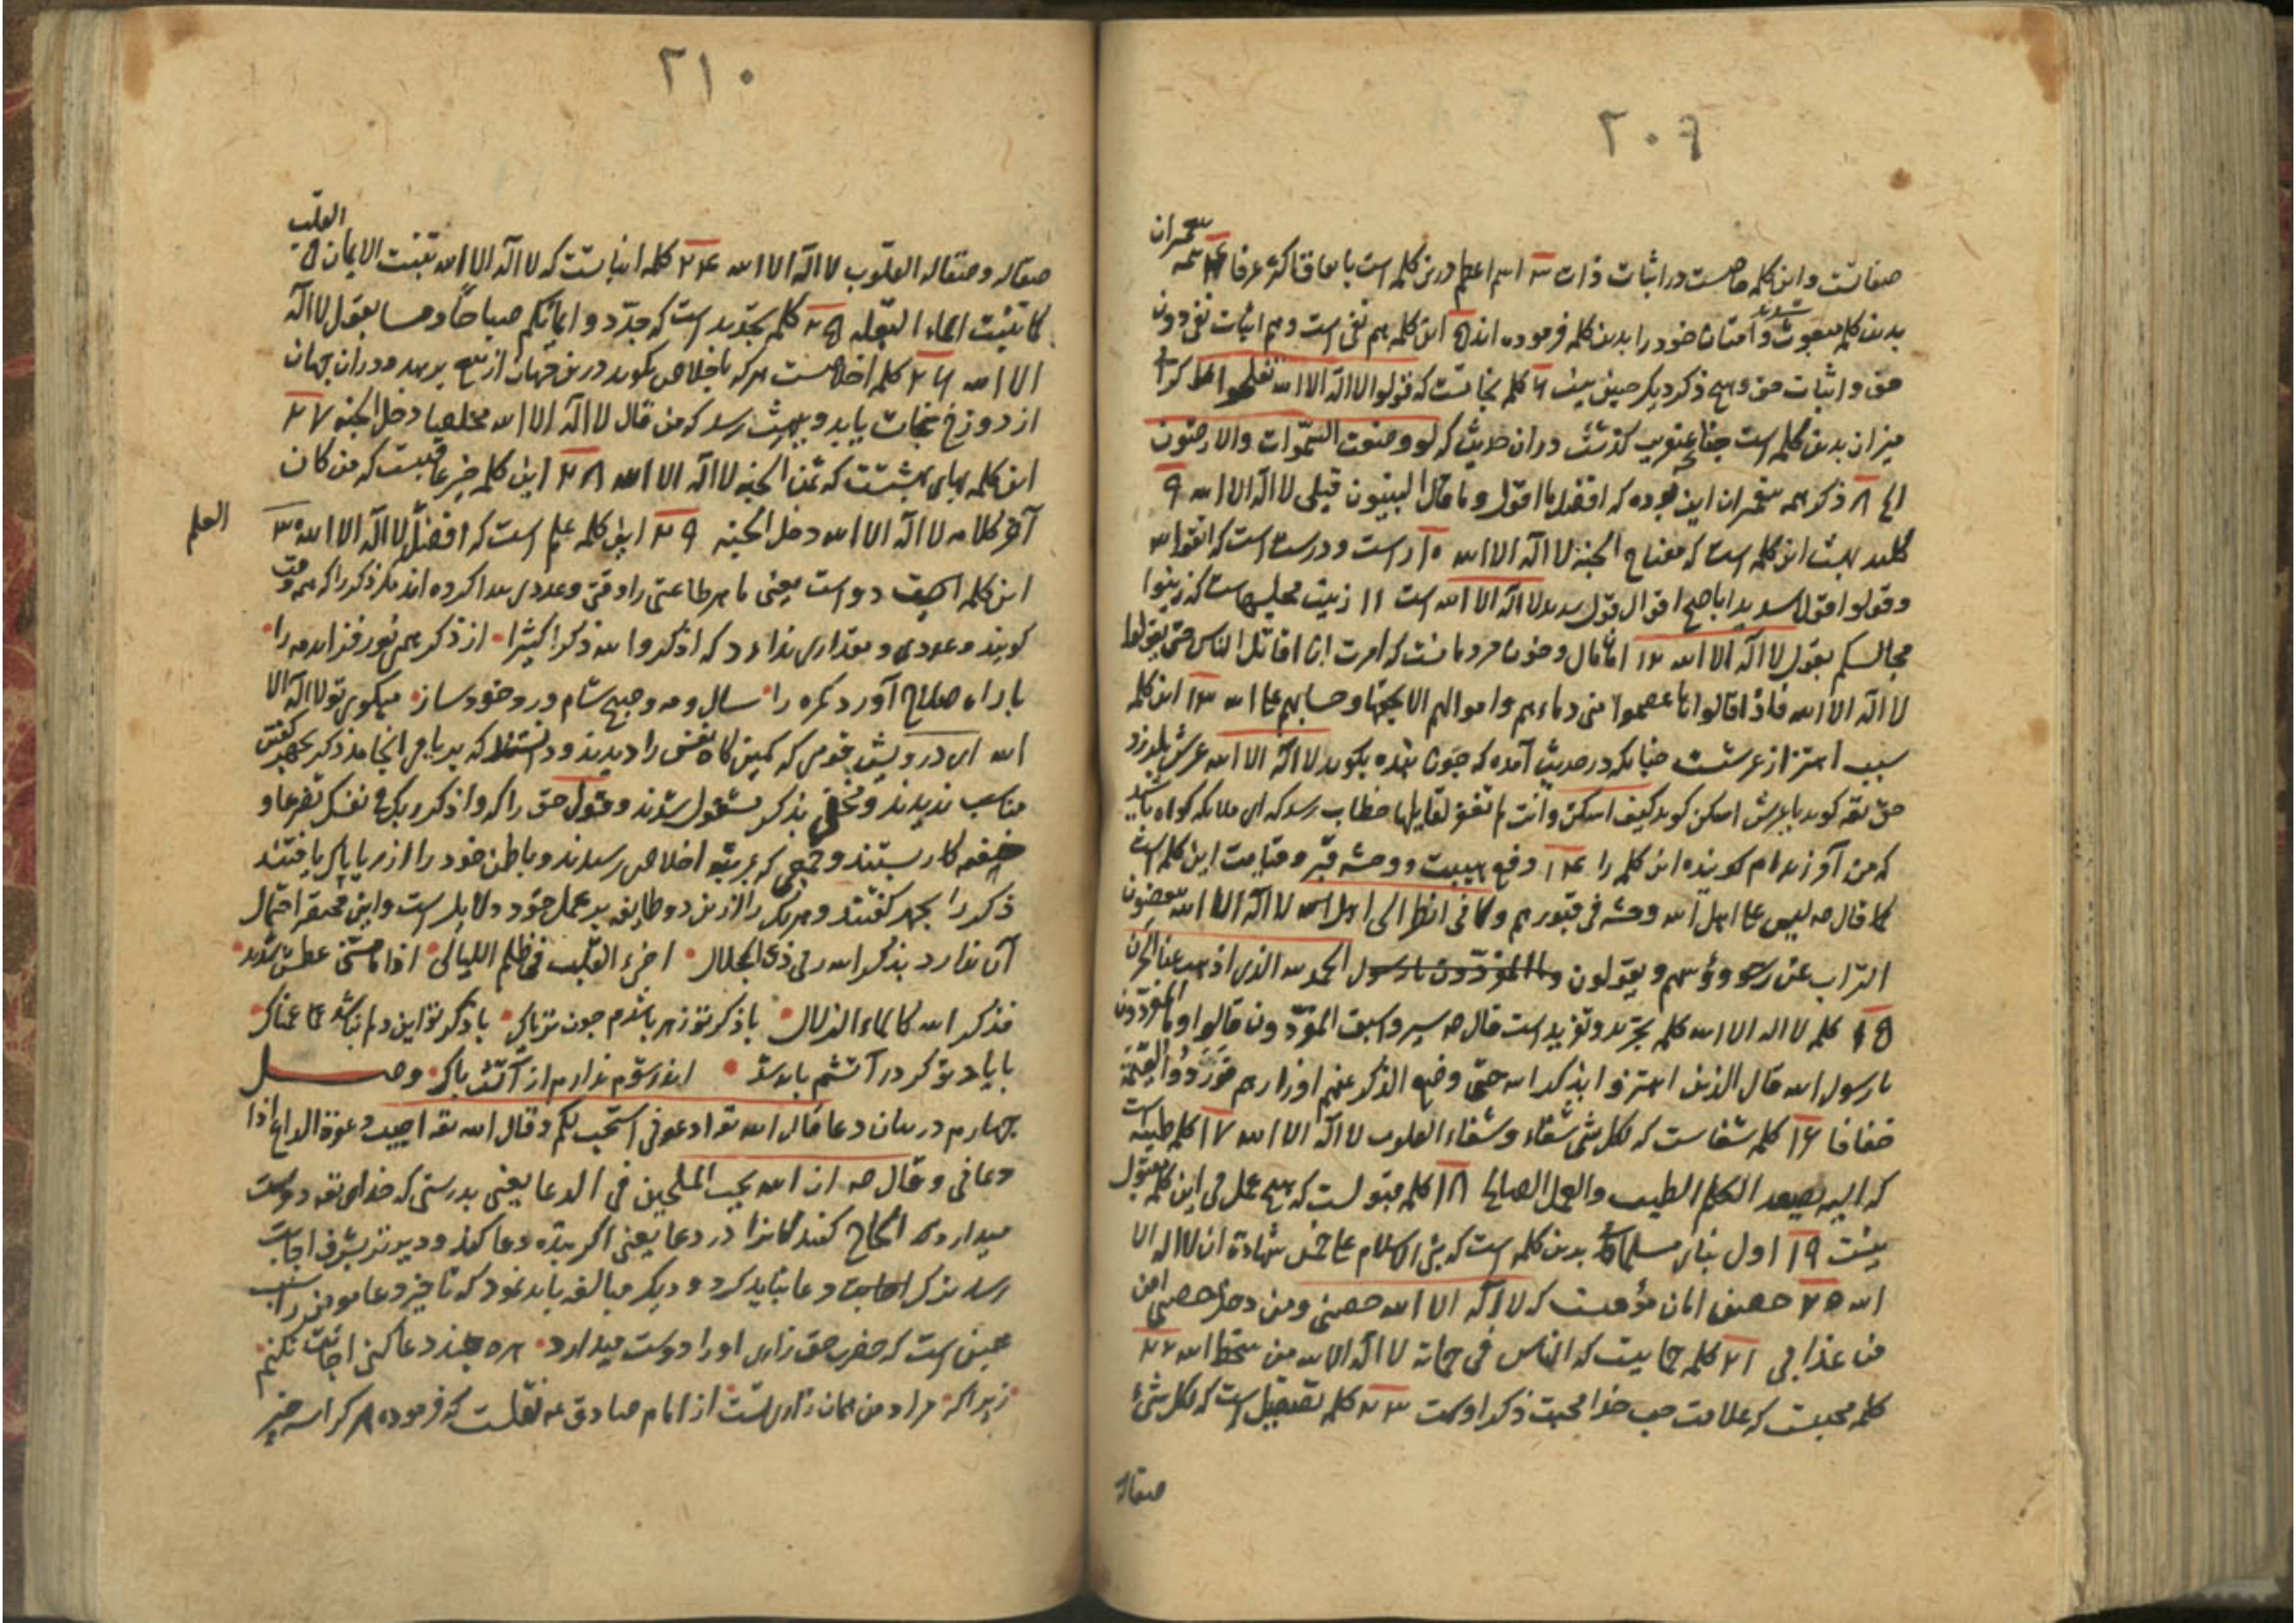 ٢٠٩
صفاتست و این کلمه خاصست در اثبات ذات ٣ اسم اعظم درین کلمه است باتفاق اکثر عرفا ٤ همه پیغمبران
بدین کلمه مبعوث شدند و امتان خود را بدین کلمه فرموده اند ٥ این کلمه هم نفی است و هم اثبات نفی دون
حق و اثبات حق و هیچ ذکر دیگر چنین نیست ٦ کلمه نجاتست که قولوا لا اله الا الله تفلحوا
میزان بدین کلمه است چنانچه عنقریب گذشت در ان حدیث که لو وضعت السموات والارضون
الخ ٨ ذکر همه پیغمبران این بوده که افضل ما اقول و ما قال النبیون قبلی لا اله الا الله ٩
کلید بهشت این کلمه است که مفتاح الجنه لا اله الا الله ١٠ راست و درست است که اتقوا الله
وقولوا قولا سدیدا باصح اقوال قول سدید لا اله الا الله است ١١ زینت مجلسهاست که زینوا
مجالسکم بقول لا اله الا الله ١٢ امان مال و خون مردمانست که امرت ان اقاتل الناس حتی یقولوا
لا اله الا الله فاذا قالوها عصموا منی دماءهم و اموالهم الا بحقها و حسابهم علی الله ١٣ این کلمه
سبب اهتزاز عرشست چنانکه در حدیث آمده که چون بنده بگوید لا اله الا الله عرش بلرزد
حق تعه گوید یا عرش اسکن گوید کیف اسکن وانت لم تغفر لقایلها خطاب رسد که ای ملائکه گواه باشید
که من آمرزیدم گوینده این کلمه را ١٤ دفع هیبت و وحشه قبر و قیامت این کلمه است
کما قال صه لیس علی اهل لا اله الا الله وحشه فی قبورهم و کانی انظر الی اهل لا اله الا الله ینفضون
التراب عن رؤوسهم و یقولون الحمد لله الذی اذهب عنا الحزن
١٥ کلمه لا اله الا الله کلمه تجرید و تفرید است قال صه سیروا سبق المفردون قالوا و ما المفردون
یا رسول الله قال الذین اهتزوا بذکر الله حتی وضع الذکر عنهم اوزارهم فوردوا القیمة
خفافا ١٦ کلمه شفاست که لکل شی شفاء و شفاء القلوب لا اله الا الله ١٧ کلمه طیبه است
که الیه یصعد الکلم الطیب والعمل الصالح ١٨ کلمه مقبولست که هیچ عمل بی این کلمه مقبول
نیست ١٩ اول بنای مسلمانی بدین کلمه است که بنی الاسلام علی خمس شهادة ان لا اله الا
الله ٢٠ حصین امان مؤمنست که لا اله الا الله حصنی ومن دخل حصنی امن
من عذابی ٢١ کلمه حمایت که الناس فی حمایة لا اله الا الله من سخط الله ٢٢
کلمه محبتست که علامت حب خدا محبت ذکر اوست ٢٣ کلمه تصقیل است که لکل شیء
صقاله
٢١٠
صقاله و صقاله القلوب لا اله الا الله ٢٤ کلمه انباتست که لا اله الا الله تنبت الایمان فی القلب
کما تنبت الماء البقله ٢٥ کلمه تجدید است که جددوا ایمانکم صباحا و مسا بقول لا اله
الا الله ٢٦ کلمه اخلاصست هر که باخلاص بگوید درین جهان از تیغ برهد و در ان جهان
از دوزخ نجات یابد و ببهشت رسد که من قال لا اله الا الله مخلصا دخل الجنه ٢٧
این کلمه بهای بهشتست که ثمن الجنه لا اله الا الله ٢٨ این کلمه خیر عاقبتست که من کان
آخر کلامه لا اله الا الله دخل الجنه ٢٩ این کلمه علم است که افضل العلم لا اله الا الله ٣٠
این کلمه را وقت دو است یعنی ما هر طاعتی را وقتی و عددی پیدا کرده اند مگر ذکر را که همه وقت
گویند و عددی و مقداری ندارد که اذکروا الله ذکرا کثیرا ۰ از ذکر همی نور فزاید مه را ۰
با راه صلاح آورد گمره را ۰ سال و مه و صبح شام ورد خود ساز ۰ میگوی تو لا اله الا
الله ای درویش قومی که کمین گاه نفس را دیدند و دانستند که بریا می انجامد ذکر بجهر گفتن
مناسب ندیدند و مخفی بذکر مشغول شدند و قول حق را که و اذکر ربک فی نفسک تضرعا و
خیفه کار بستند و جمعی که بمرتبه اخلاص رسیدند و باطن خود را از ریا پاک یافتند
ذکر را بجهر گفتند و هریک را ازین دو طایفه بر عمل خود دلایل است و این مختصر احتمال
آن ندارد بذکر الله ربی ذی الجلال ۰ اضیء القلب فی ظلم اللیالی ۰ اذا ما مسنی عطش شدید ۰
فذکر الله کالماء الزلال ۰ با ذکر تو زهر باشدم چون تریاک ۰ با ذکر تو این دلم نباشد غمناک ۰
با یاد تو گر در آتشم باید شد ۰ اندر تو ندارم از آتش باک ۰ وصل
چهارم در بیان دعا قال الله تعه ادعونی استجب لکم و قال الله تعه اجیب دعوة الداع اذا
دعانی و قال صه ان الله یحب الملحین فی الدعا یعنی بدرستی که خدای تعه دوست
میدارد الحاح کنندگانرا در دعا یعنی اگر بنده دعا کند و دیرتر بشرف اجابت
رسد ترک دعا نباید کرد و دیگر مبالغه باید نمود که تاخیر دعا مومن را سبب
همین است که حضرت حق زاری او را دوست میدارد ۰ هر چند دعا کنی اجابت نکنم
زیرا که مراد من همان زاری تست ۰ از امام صادق عه نقلست که فرموده هر که را سه چیز
العلم